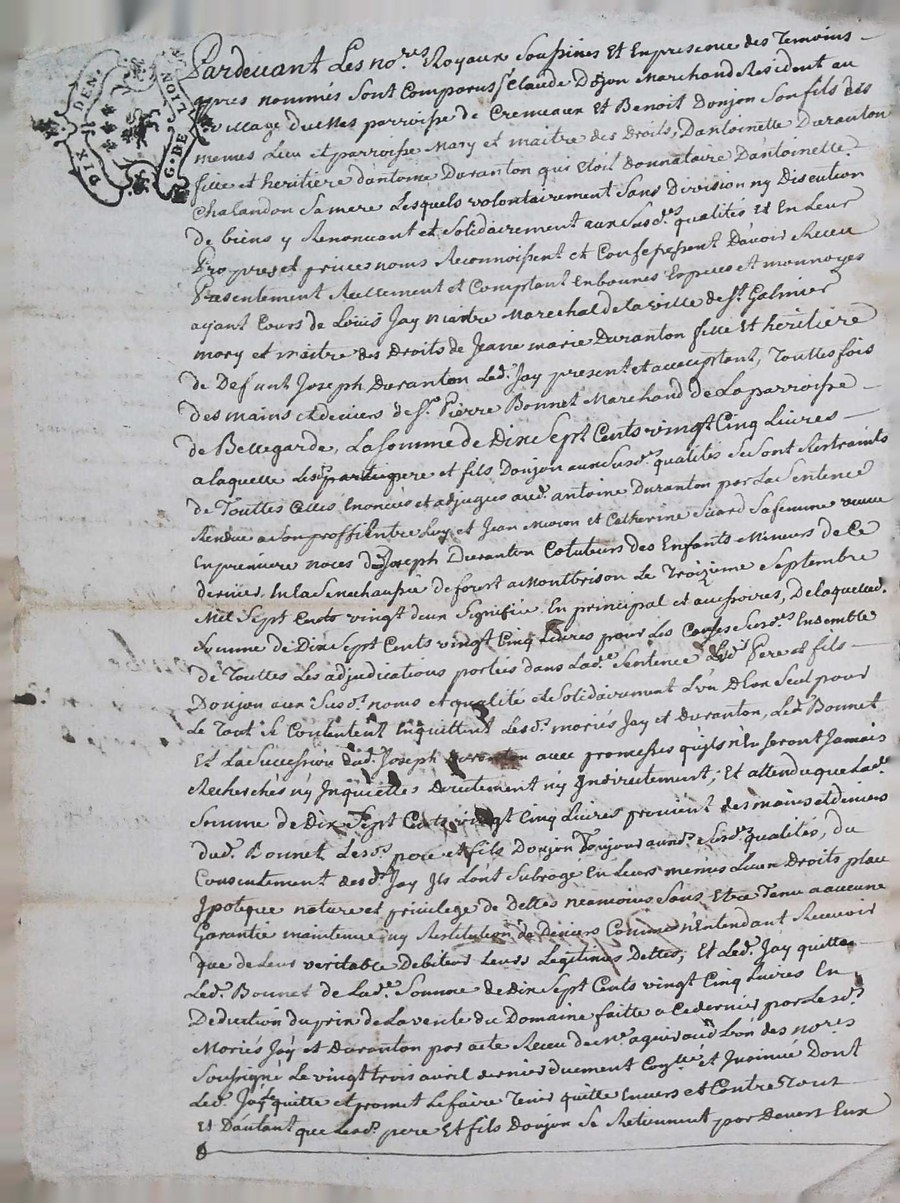 DIX DEN.
G. DE LION
Pardevant Les no.res Royaux Soussines Et En presence des Temoins
apres nommés Sont Comparus S.r Claude Donjon Marchand Resident au
village parroisse de Cremeaux Et Benoit Donjon Son fils des
memes Lieu et parroisse Mary et maitre des Droits, Dantoinette Duranton
fille et heritiere dantoine Duranton qui Etoit donnataire Dantoinette
Chalandon Sa mere Lesquels volontairement Sans Division ny Discution
de biens y Renoncant et Solidairement aux Susd.es qualités Et En Leur
Propres et privés noms Reconnoissent et Confessent Davoir Receu
Presentement Reellement et Comptant En bonnes Especes et monnoyes
ayant Cours de Loüis Jay maitre Marechal de la ville de S.t Galmier
mary et maitre des Droits de Jeane marie Duranton fille Et heritiere
de Defunt Joseph Duranton Led. Jay present et acceptant, Touttes fois
des mains et deniers de S.r Pierre Bonnet Marchand de La parroisse
de Bellegarde, La Somme de Dix Sept Cents vingt Cinq Livres
a laquelle Lesd. pere et fils Donjon aux Susd. qualités Se Sont Restraints
de Touttes Celles Enoncées et adjugées aud. antoine Duranton par La Sentence
Rendue a Son proffit Entre Luy et Jean et Catherine Suard Sa femme veuve
En premiere noces de Joseph Duranton Cotuteurs des Enfants Mineurs de Ce
dernier En la Senechaussée de forest a Montbrison Le Troizieme Septembre
Mil Sept Cents vingt deux Signifiée En principal et accessoires, De laquelle
Somme de Dix Sept Cents vingt Cinq Livres pour Les Causes Susd.es Ensemble
de Touttes Les adjudications portées dans Lad.e Sentence Lesd. Pere et fils
Donjon aux Susd. noms et qualité et Solidairement L'un D'Eux Seul pour
Le Tout Se Contentent En quittent Lesd. mariés Jay et Duranton, Led. Bonnet
Et La Succession dud. Joseph Duranton avec promesses qu'ils n'En Seront Jamais
Recherchés ny Inquiettés directement ny Indirectement; Et attendu que Lad.e
Somme de Dix Sept Cents vingt Cinq Livres provient des mains et deniers
dud. Bonnet Lesd. pere et fils Donjon Toujours aux Susd. qualités, du
Consentement dud. Jay Ils L'ont Subrogé En Leurs memes Lieux Droits place
Ipoteque nature et privilege de Dettes neamoins Sans Etre Tenu a aucune
Garantie maintenue ny Restitution de Deniers Comme n'Entendant Recevoir
que de Leur veritable Debiteur Leurs Legitimes Dettes, Et Led. Jay quitte
Led. Bonnet de Lad.e Somme de Dix Sept Cents vingt Cinq Livres En
Deduction du prix de La vente du Domaine faitte a Ce dernier par Lesd.
Mariés Jay et Duranton par acte Receu de M.e L'un des no.res
Soussigné Le vingt trois avril dernier duement et Insinué Dont
Led. Jay quitte et promet Le faire Tenir quitte Envers et Contre Tout
Et Dautant que Lesd. pere Et fils Donjon Se Retiennent par Devers Eux